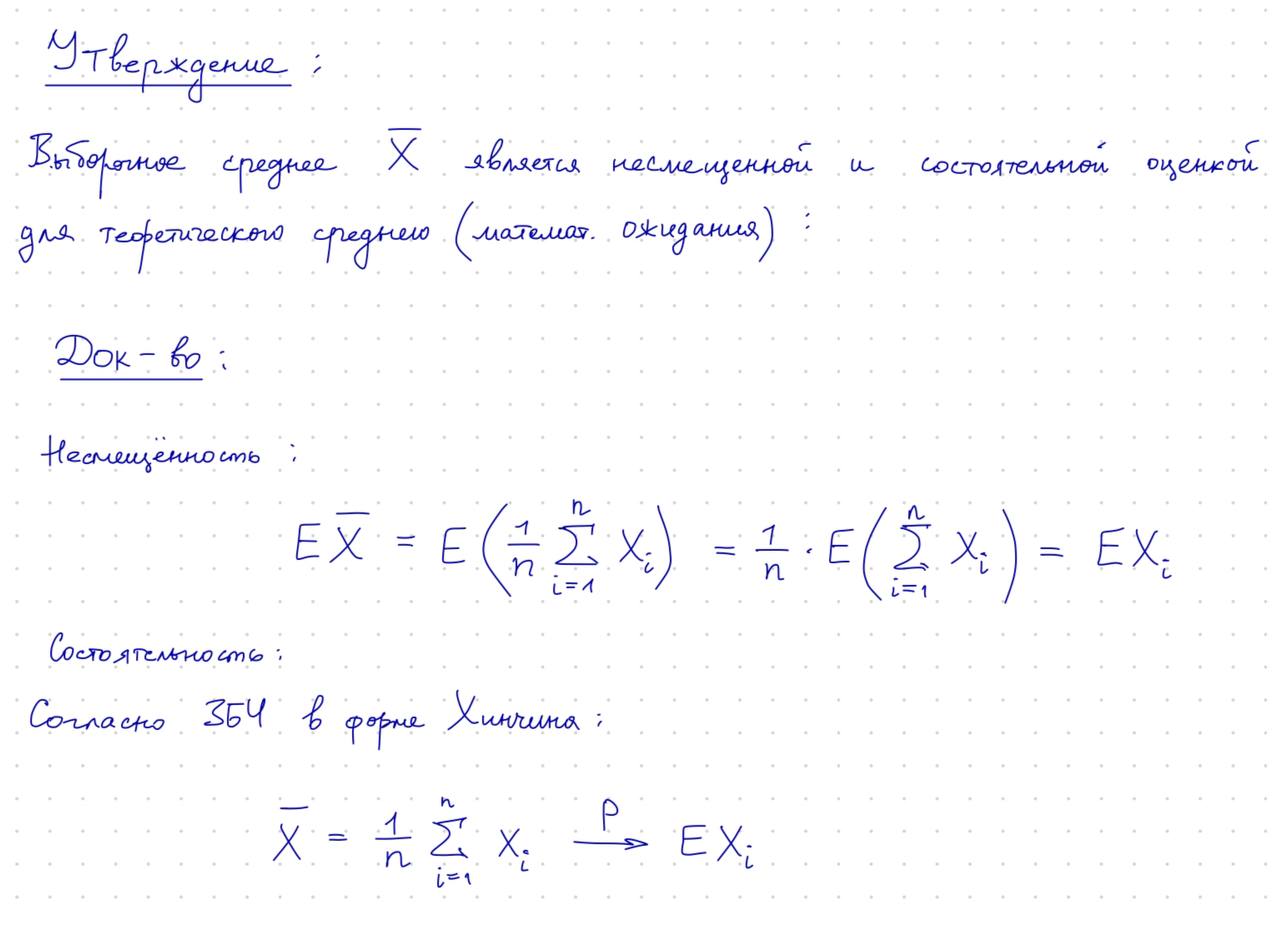 Утверждение :
Выборочное среднее X̅ является несмещенной и состоятельной оценкой
для теоретического среднего (математ. ожидания) :
Док-во :
Несмещённость :
E X̅ = E( 1/n ∑_{i=1}^{n} X_i ) = 1/n · E( ∑_{i=1}^{n} X_i ) = E X_i
Состоятельность :
Согласно ЗБЧ в форме Хинчина :
X̅ = 1/n ∑_{i=1}^{n} X_i →^{P} E X_i